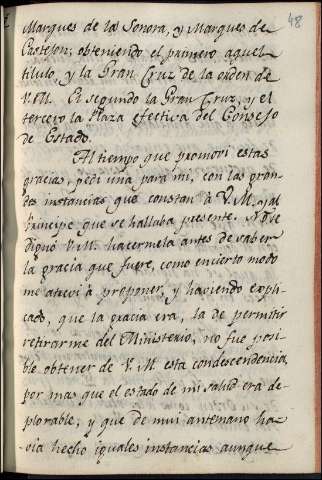 48
Marques de la Sonora, y Marques de
Castejon; obteniendo el primero aquel
titulo, y la Gran Cruz de la orden de
V.M. El segundo la Gran Cruz, y el
tercero la Plaza efectiva del Consejo
de Estado.
Al tiempo que promovi estas
gracias, pedi una para mi, con las gran-
des instancias que constan à V.M. y al
Principe que se hallaba presente. No se
dignó V.M. hacermela antes de saber
la gracia que fuere, como encierto modo
me atrevi à proponer, y haviendo expli-
cado, que la gracia era, la de permitir
retirarme del Ministerio, no fue posi-
ble obtener de V.M esta condescendencia,
por mas que el estado de mi salud era de-
plorable, y que de mui antemano ha-
via hecho iguales instancias aunque